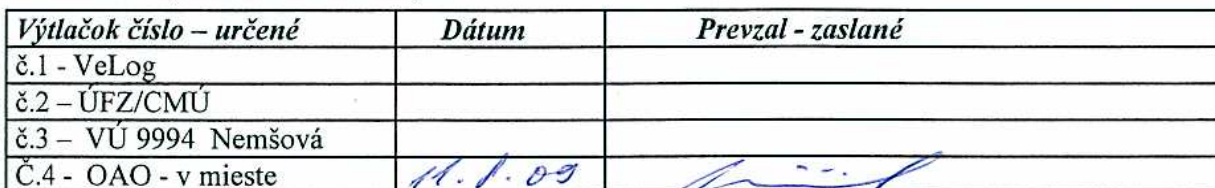 Výtlačok číslo – určené Dátum Prevzal - zaslané
č.1 - VeLog
č.2 – ÚFZ/CMÚ
č.3 – VÚ 9994 Nemšová
Č.4 - OAO - v mieste 09